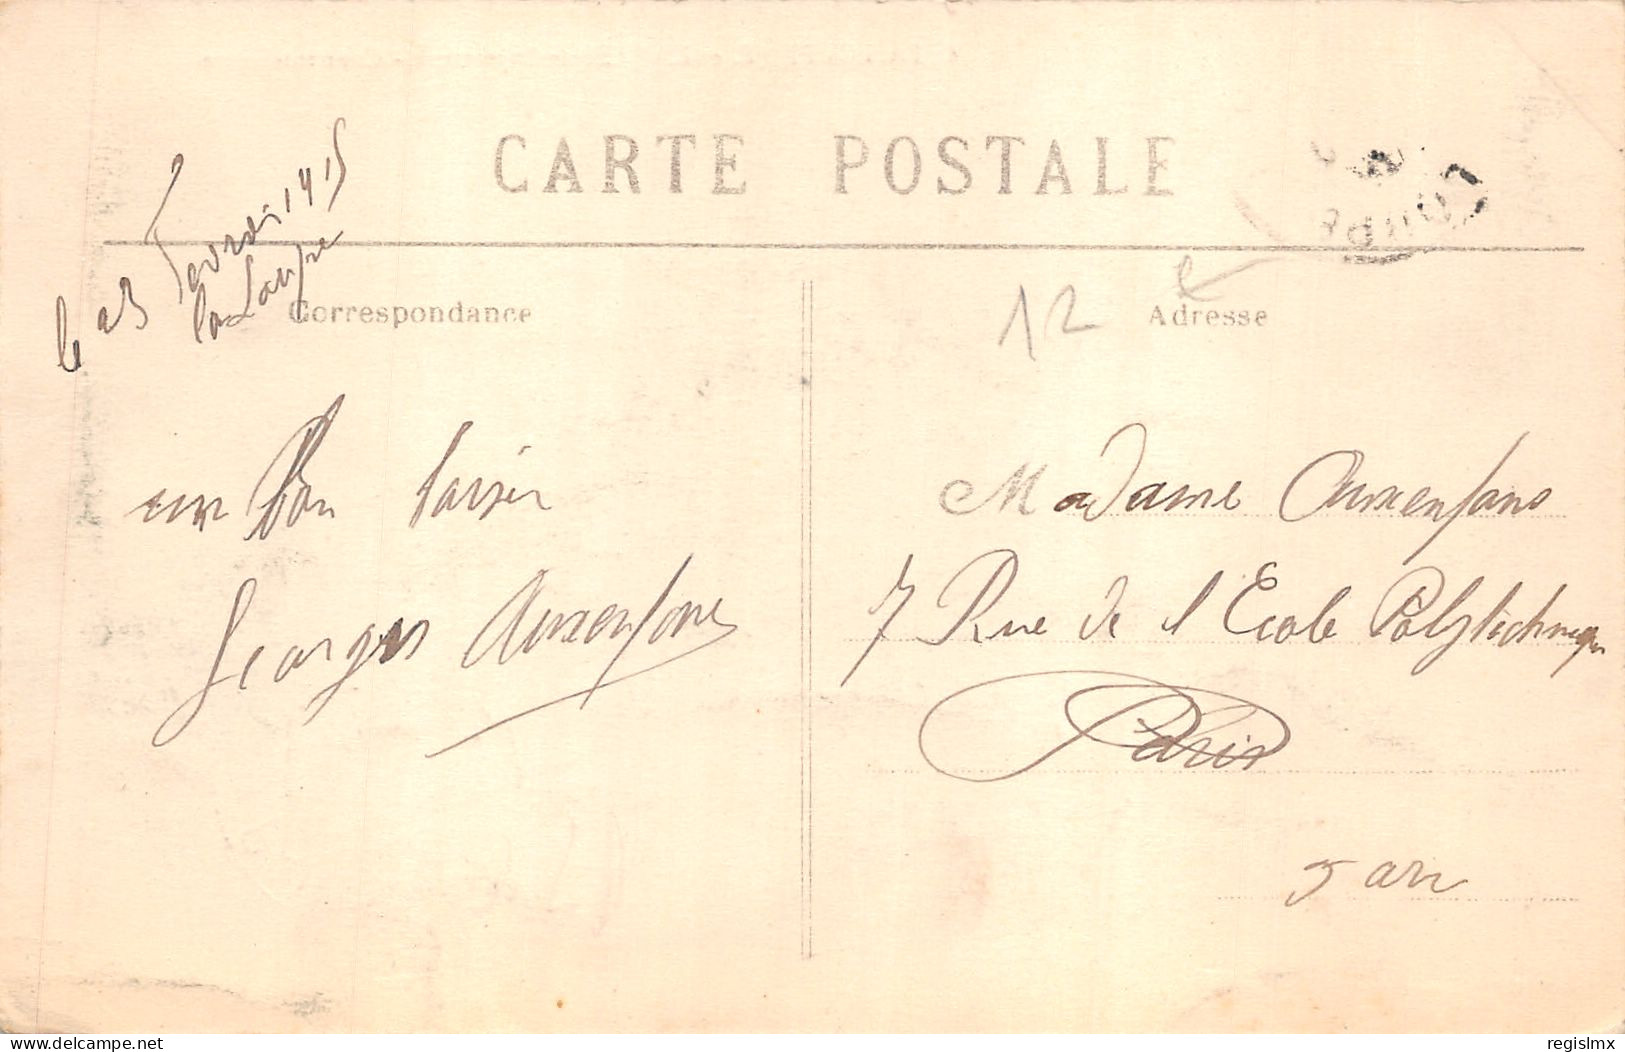 CARTE POSTALE
le 23
1915
la Loupe
Correspondance
un Bon baiser
Georges Auxenfans
12
Adresse
Madame Auxenfans
7 Rue de l'Ecole Polytechnique
Paris
5 arr
delcampe.net
regislmx